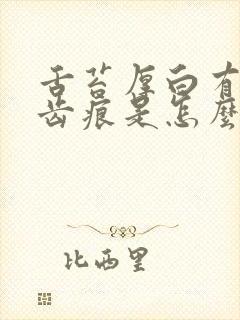 舌苔厚白有
齿痕是怎麼
比西里